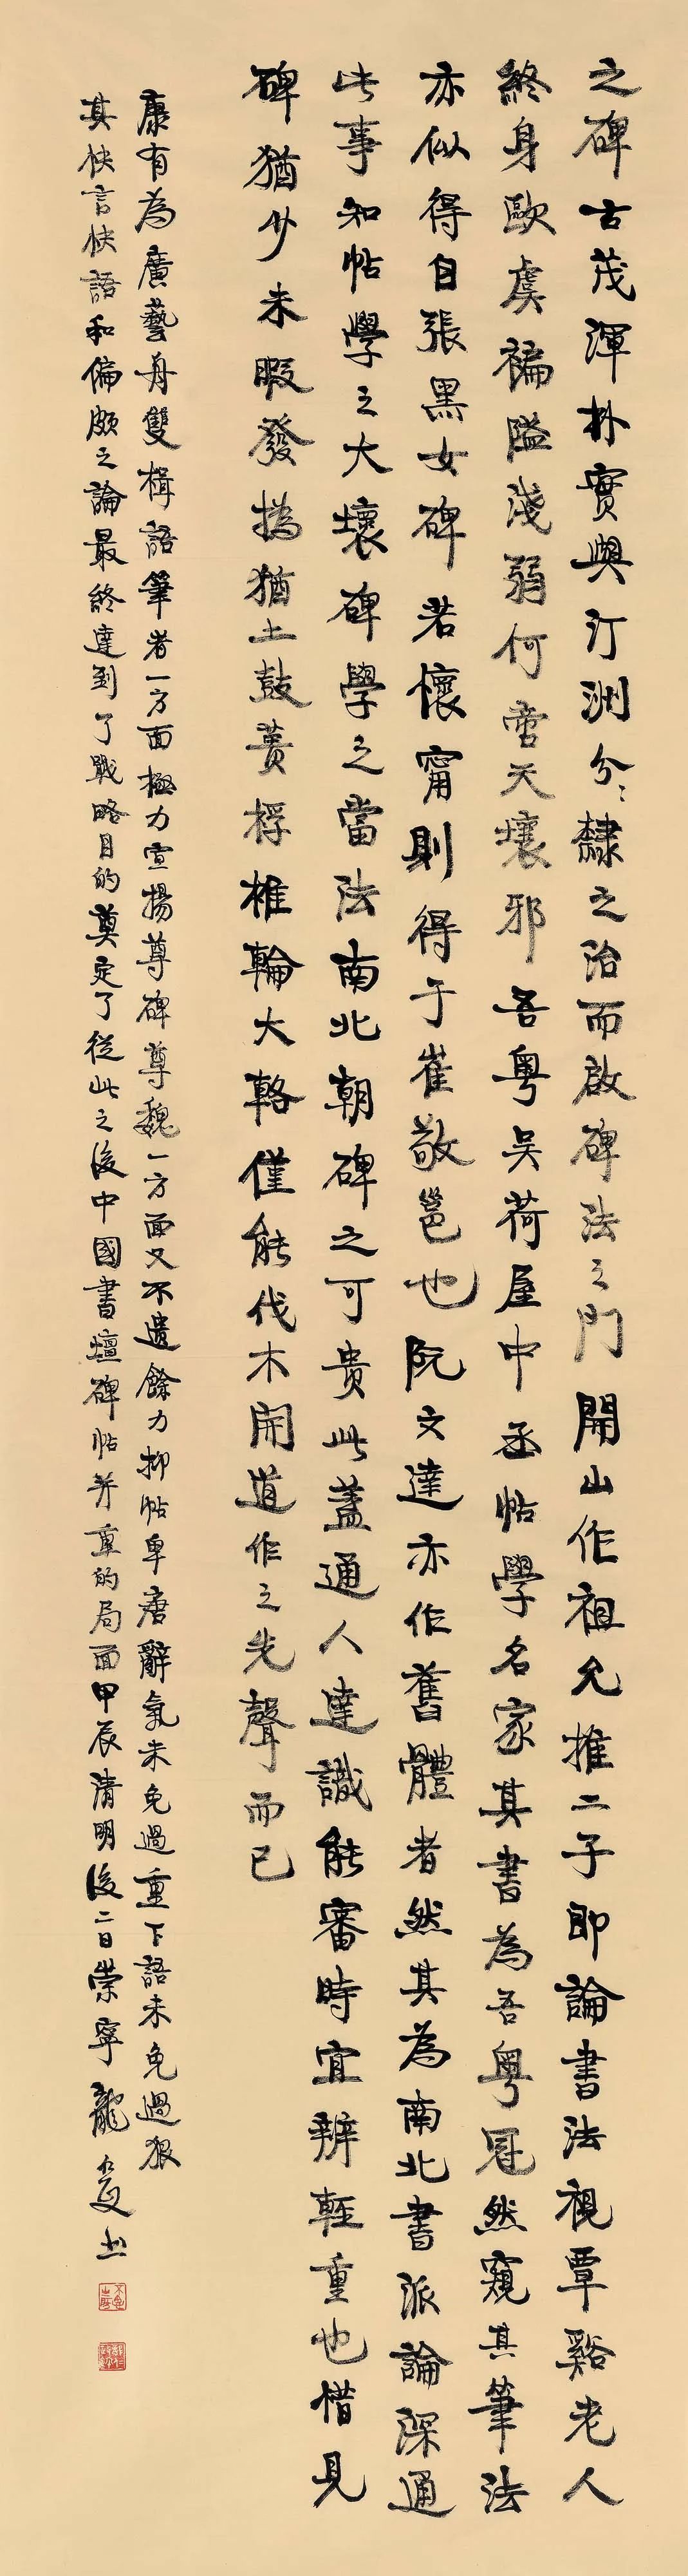 之碑古茂渾朴實與汀洲分〻隸之治而啟碑法之門開山作祖允推二子即論書法視覃谿老人
終身歐虞褊隘淺弱何啻天壤邪吾粵吳荷屋中丞帖學名家其書為吾粵冠然窺其筆法
亦似得自張黑女碑若懷甯則得于崔敬邕也阮文達亦作舊體者然其為南北書派論深通
此事知帖學之大壞碑學之當法南北朝碑之可貴此蓋通人達識能審時宜辨輕重也惜見
碑猶少未暇發撝猶土鼓蕢桴椎輪大輅僅能伐木開道作之先聲而已
康有為廣藝舟雙楫語筆者一方面極力宣揚尊碑尊魏一方面又不遺餘力抑帖卑唐辭氣未免過重下語未免過狠
其快言快語和偏頗之論最終達到了戰略目的奠定了從此之後中國書壇碑帖并重的局面甲辰清明後二日崇寧龍